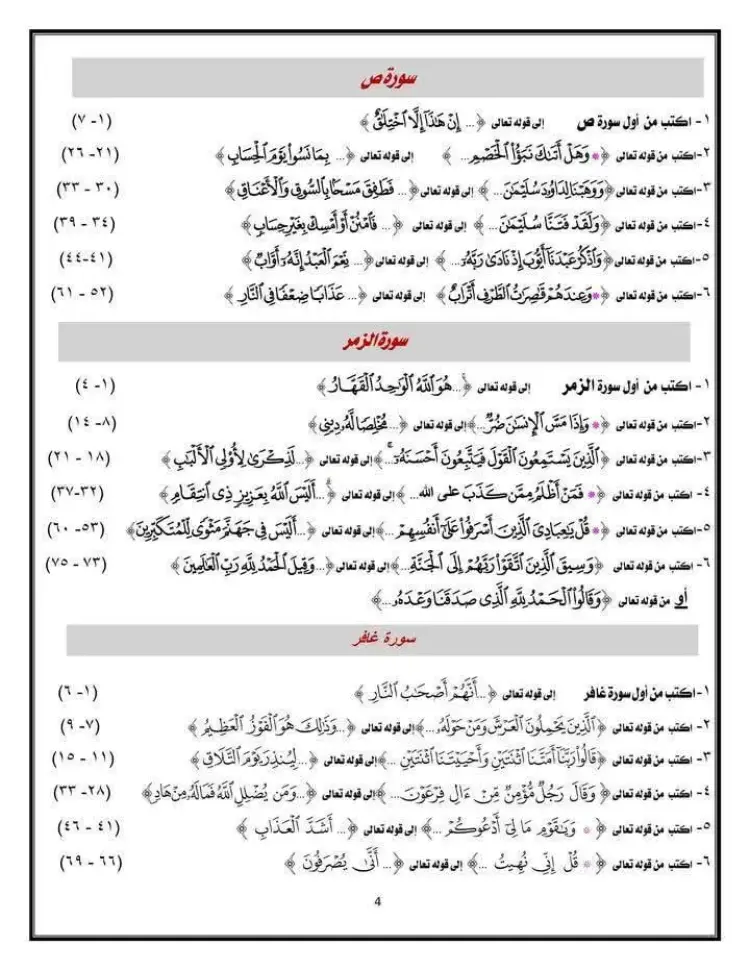 سورة ص
١- اكتب من أول سورة ص إلى قوله تعالى ﴿... إِنْ هَٰذَا إِلَّا ٱخْتِلَٰقٌ ﴾ (١- ٧)
٢- اكتب من قوله تعالى ﴿* وَهَلْ أَتَىٰكَ نَبَؤُا۟ ٱلْخَصْمِ... ﴾ إلى قوله تعالى ﴿... بِمَا نَسُوا۟ يَوْمَ ٱلْحِسَابِ ﴾ (٢١- ٢٦)
٣- اكتب من قوله تعالى ﴿وَوَهَبْنَا لِدَاوُۥدَ سُلَيْمَٰنَ... ﴾ إلى قوله تعالى ﴿... فَطَفِقَ مَسْحًۢا بِٱلسُّوقِ وَٱلْأَعْنَاقِ ﴾ (٣٠ - ٣٣)
٤- اكتب من قوله تعالى ﴿وَلَقَدْ فَتَنَّا سُلَيْمَٰنَ... ﴾ إلى قوله تعالى ﴿... فَٱمْنُنْ أَوْ أَمْسِكْ بِغَيْرِ حِسَابٍ ﴾ (٣٤ - ٣٩)
٥- اكتب من قوله تعالى ﴿وَٱذْكُرْ عَبْدَنَآ أَيُّوبَ إِذْ نَادَىٰ رَبَّهُۥٓ... ﴾ إلى قوله تعالى ﴿... نِّعْمَ ٱلْعَبْدُ إِنَّهُۥٓ أَوَّابٌ ﴾ (٤١-٤٤)
٦- اكتب من قوله تعالى ﴿*وَعِندَهُمْ قَٰصِرَٰتُ ٱلطَّرْفِ أَتْرَابٌ ﴾ إلى قوله تعالى ﴿... عَذَابًا ضِعْفًا فِى ٱلنَّارِ ﴾ (٥٢ - ٦١)
سورة الزمر
١- اكتب من أول سورة الزمر إلى قوله تعالى ﴿...هُوَ ٱللَّهُ ٱلْوَٰحِدُ ٱلْقَهَّارُ ﴾ (١- ٤)
٢- اكتب من قوله تعالى ﴿* وَإِذَا مَسَّ ٱلْإِنسَٰنَ ضُرٌّ...﴾ إلى قوله تعالى ﴿...مُخْلِصًا لَّهُۥ دِينِى﴾ (٨- ١٤)
٣- اكتب من قوله تعالى ﴿ٱلَّذِينَ يَسْتَمِعُونَ ٱلْقَوْلَ فَيَتَّبِعُونَ أَحْسَنَهُۥٓ ۚ...﴾ إلى قوله تعالى ﴿...لَذِكْرَىٰ لِأُو۟لِى ٱلْأَلْبَٰبِ ﴾ (١٨ - ٢١)
٤- اكتب من قوله تعالى ﴿* فَمَنْ أَظْلَمُ مِمَّن كَذَبَ على الله... ﴾ إلى قوله تعالى ﴿...أَلَيْسَ ٱللَّهُ بِعَزِيزٍ ذِى ٱنتِقَامٍ ﴾ (٣٢-٣٧)
٥- اكتب من قوله تعالى ﴿* قُلْ يَٰعِبَادِىَ ٱلَّذِينَ أَسْرَفُوا۟ عَلَىٰٓ أَنفُسِهِمْ...﴾ إلى قوله تعالى ﴿...أَلَيْسَ فِى جَهَنَّمَ مَثْوًى لِّلْمُتَكَبِّرِينَ﴾ (٥٣- ٦٠)
٦- اكتب من قوله تعالى ﴿وَسِيقَ ٱلَّذِينَ ٱتَّقَوْا۟ رَبَّهُمْ إِلَى ٱلْجَنَّةِ...﴾ إلى قوله تعالى ﴿...وَقِيلَ ٱلْحَمْدُ لِلَّهِ رَبِّ ٱلْعَٰلَمِينَ ﴾ (٧٣ - ٧٥)
أو من قوله تعالى ﴿وَقَالُوا۟ ٱلْحَمْدُ لِلَّهِ ٱلَّذِى صَدَقَنَا وَعْدَهُۥ...﴾
سورة غافر
١- اكتب من أول سورة غافر إلى قوله تعالى ﴿...أَنَّهُمْ أَصْحَٰبُ ٱلنَّارِ ﴾ (١- ٦)
٢- اكتب من قوله تعالى ﴿ٱلَّذِينَ يَحْمِلُونَ ٱلْعَرْشَ وَمَنْ حَوْلَهُۥ...﴾ إلى قوله تعالى ﴿...وَذَٰلِكَ هُوَ ٱلْفَوْزُ ٱلْعَظِيمُ ﴾ (٧- ٩)
٣- اكتب من قوله تعالى ﴿قَالُوا۟ رَبَّنَآ أَمَتَّنَا ٱثْنَتَيْنِ وَأَحْيَيْتَنَا ٱثْنَتَيْنِ ...﴾ إلى قوله تعالى ﴿...لِيُنذِرَ يَوْمَ ٱلتَّلَاقِ ﴾ (١١ - ١٥)
٤- اكتب من قوله تعالى ﴿ وَقَالَ رَجُلٌ مُّؤْمِنٌ مِّنْ ءَالِ فِرْعَوْنَ... ﴾ إلى قوله تعالى ﴿...وَمَن يُضْلِلِ ٱللَّهُ فَمَا لَهُۥ مِنْ هَادٍ﴾ (٢٨- ٣٣)
٥- اكتب من قوله تعالى ﴿ * وَيَٰقَوْمِ مَا لِىٓ أَدْعُوكُمْ ...﴾ إلى قوله تعالى ﴿... أَشَدَّ ٱلْعَذَابِ ﴾ (٤١ - ٤٦)
٦- اكتب من قوله تعالى ﴿* قُلْ إِنِّى نُهِيتُ ...﴾ إلى قوله تعالى ﴿... أَنَّىٰ يُصْرَفُونَ ﴾ (٦٦ - ٦٩)
4